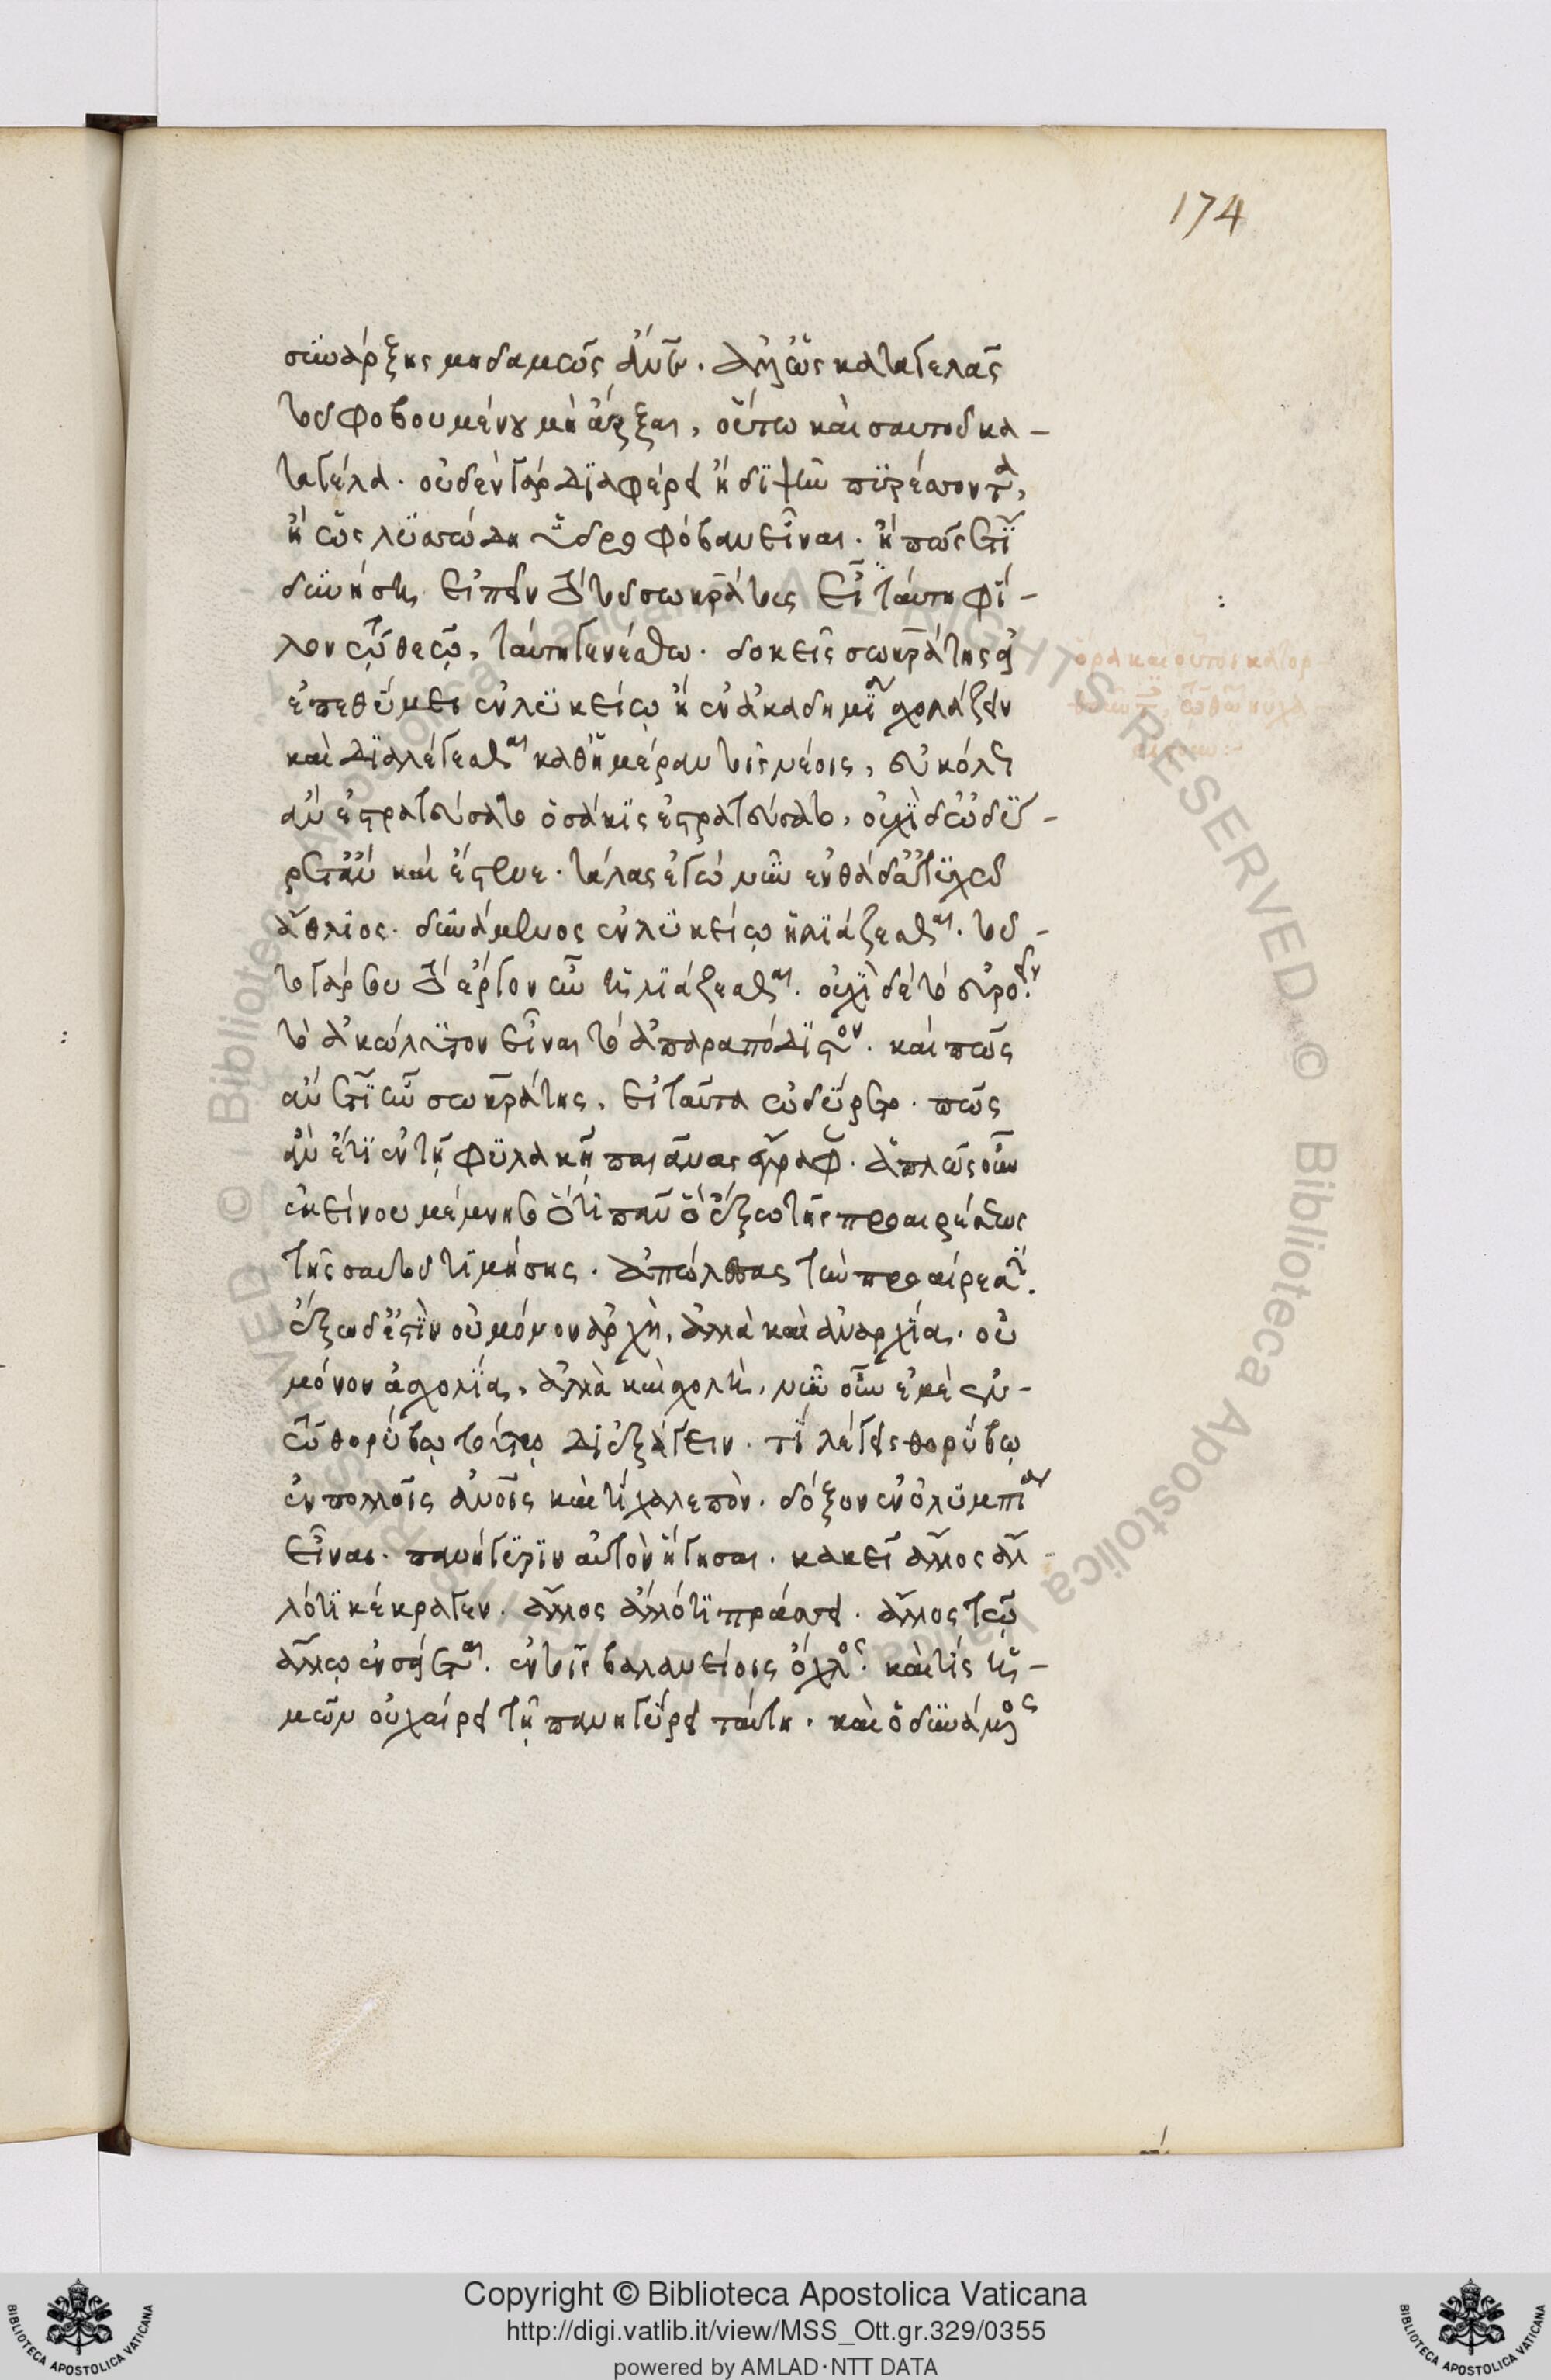 174
συνάρξης μηδαμῶς αὐτῶ. ἀλλ' ὡς καταγελᾶς
τοῦ φοβουμένου μὴ ἄρξαι, οὕτω καὶ σαυτοῦ κα-
ταγέλα. οὐδὲν γὰρ διαφέρει ἢ διψῆν πυρέσσοντα,
ἢ ὡς λυσσώδη ὑδροφόβαν εἶναι. ἢ πῶς ἔτι
δυνήση εἰπεῖν τὸ τοῦ σωκράτους εἰ ταύτη φί-
λον τῶ θεῶ, ταύτη γενέσθω. δοκεῖς σωκράτης εἰ
ἐπεθύμει ἐν λυκείω ἢ ἐν ἀκαδημία σχολάζειν
καὶ διαλέγεσθαι καθ' ἡμέραν τοῖς νέοις, εὐκόλως
ἂν ἐστρατεύσατο ὁσάκις ἐστρατεύσατο, οὐχὶ δ' ὠδύ-
ρετ' ἂν καὶ ἔστενε. τάλας ἐγὼ νῦν ἐνθάδ' ἀτυχῶ
ἄθλιος. δυνάμενος ἐν λυκείω ἡλιάζεσθαι. τοῦ-
το γάρ σου τὸ ἔργον ἦν ἡλιάζεσθαι. οὐχὶ δὲ τὸ εὐροεῖν.
τὸ ἀκώλυτον εἶναι τὸ ἀπαραπόδιστον. καὶ πῶς
ἂν ἔτι ἦν σωκράτης, εἰ ταῦτα ὠδύρετο. πῶς
ἂν ἔτι ἐν τῆ φυλακῆ παιᾶνας ἔγραφε. ἁπλῶς οὖν
ἐκείνου μέμνησο ὅτι πᾶν ὃ ἔξω τῆς προαιρέσεως
τῆς σαυτοῦ τιμήσης. ἀπώλεσας τὴν προαίρεσιν.
ἔξω δ' ἐστὶν οὐ μόνον ἀρχὴ, ἀλλὰ καὶ ἀναρχία. οὐ
μόνον ἀσχολία, ἀλλὰ καὶ σχολή. νῦν οὖν ἐμὲ ἐν
τῶ θορύβω τούτω διεξάγειν. τί λέγεις θορύβω
ἐν πολλοῖς ἀνοις καὶ τί χαλεπὸν. δόξον ἐν ὀλυμπία
εἶναι. πανήγυριν αὐτὸν ἥγησαι. κακεῖ ἄλλος ἄλ-
λό τι κέκραγεν. ἄλλος ἄλλό τι πράσσει. ἄλλος τῶ
ἄλλω ἐνσείεται. ἐν τοῖς βαλανείοις ὄχλος. καὶ τίς ἡ-
μῶν οὐ χαίρει τῆ πανηγύρει ταύτη. καὶ ὀδυνώμενος
ὅρα καὶ οὗτοι κατορ
Copyright © Biblioteca Apostolica Vaticana
http://digi.vatlib.it/view/MSS_Ott.gr.329/0355
powered by AMLAD·NTT DATA